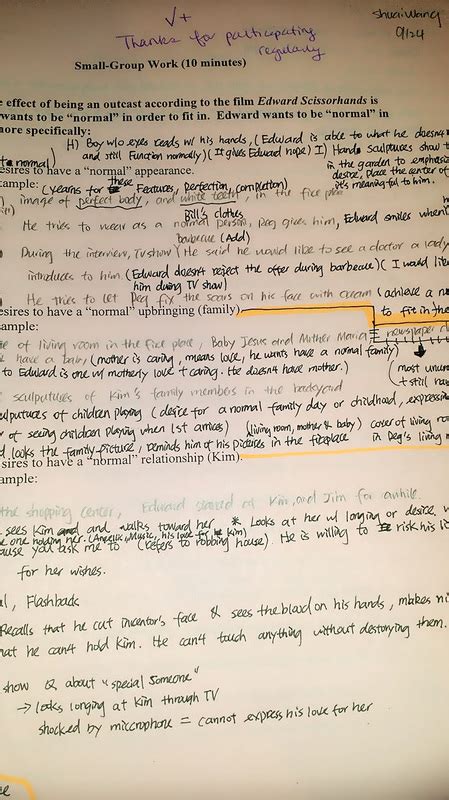 ✓+
Thanks for participating
regularly
Shuai Wang
9/24
Small-Group Work (10 minutes)
e effect of being an outcast according to the film Edward Scissorhands is
wants to be "normal" in order to fit in. Edward wants to be "normal" in
more specifically:
H) Boy w/o eyes reads w/ his hands, (Edward is able to what he doesn't
and still Function normally) (It gives Edward hope) I) Hand sculptures show t
to normal)
in the garden to emphasize
esires to have a "normal" appearance.
desire, place the center of
it's meaningful to him.
ample: (Yearns for these Features, perfection, completion)
image of perfect body, and white teeth, in the fire place
Bill's clothes
He tries to wear as a normal person, Peg gives him, Edward smiles when
barbecue (Add)
During the interview, TV show) He said he would like to see a doctor a lady
introduces to him. (Edward doesn't reject the offer during barbecue) ( I would like
him during TV show)
He tries to let Peg fix the scars on his face with cream (achieve a no
esires to have a "normal" upbringing (family).
to fit in the
ample:
newspaper cl
e of living room in the fire place, Baby Jesus and Mother Maria
have a baby (mother is caring, means love, he wants have a normal family)
to Edward is one w/ motherly love + caring. He doesn't have mother.)
(most unusu
+ still has
sculptures of Kim's family members in the backyard
sculputures of children playing (desire for a normal family day or childhood, expressing
of seeing children playing when 1st arrives) (living room, mother & baby) cover of living ro
d looks the family picture, reminds him of his pictures in the fireplace in Peg's living
sires to have a "normal" relationship (Kim).
ample:
the shopping center, Edward stared at Kim, and Jim for awhile.
sees Kim and and walks toward her * Looks at her w/ longing or desire, w
e one holding her. (Angelic, Music, his love for Kim)
ause you ask me to (refers to robbing house). He is willing to risk his li
for her wishes.
al, Flashback
Recalls that he cut inventor's face & sees the blood on his hands, makes
hat he can't hold Kim. He can't touch anything without destorying them.
show Q about "special someone"
→ looks longing at Kim through TV
shocked by miccrophone = cannot express his love for her